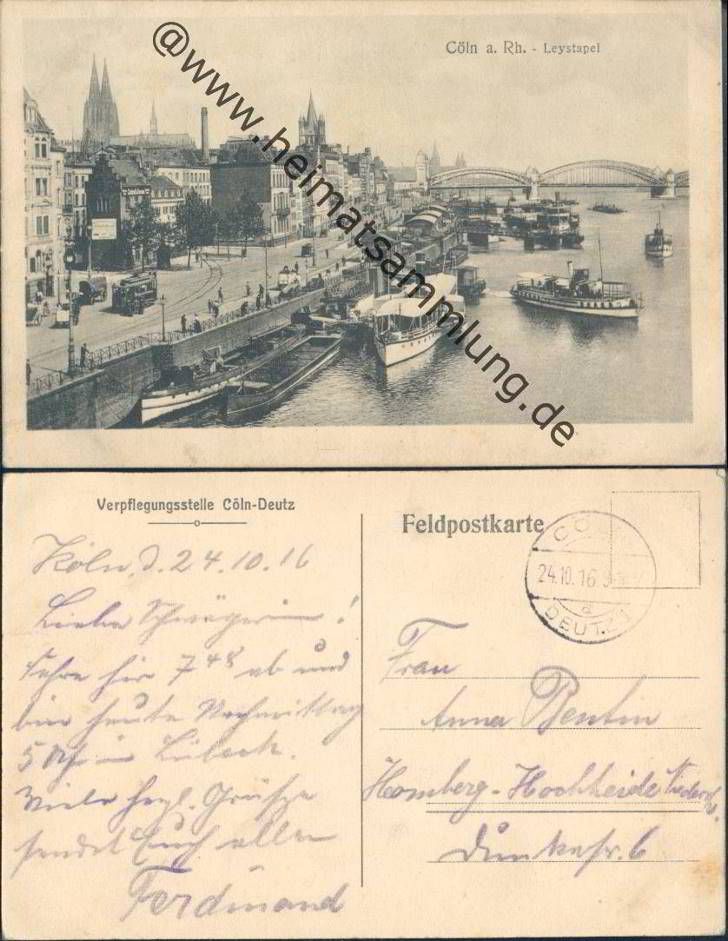 Cöln a. Rh. - Leystapel
@www.heimatsammlung.de
Verpflegungsstelle Cöln-Deutz
Köln, d. 24.10.16
Liebe Schwägerin!
Fahre hir 7 48 ab und
bin heute Nachmittag
5 Uhr in Lübeck.
Viele herzl. Grüße
sendet Euch allen
Ferdinand
Feldpostkarte
CÖLN
24.10.16
a
DEUTZ 1
Frau
Anna Bentin
Homberg-Hochheide